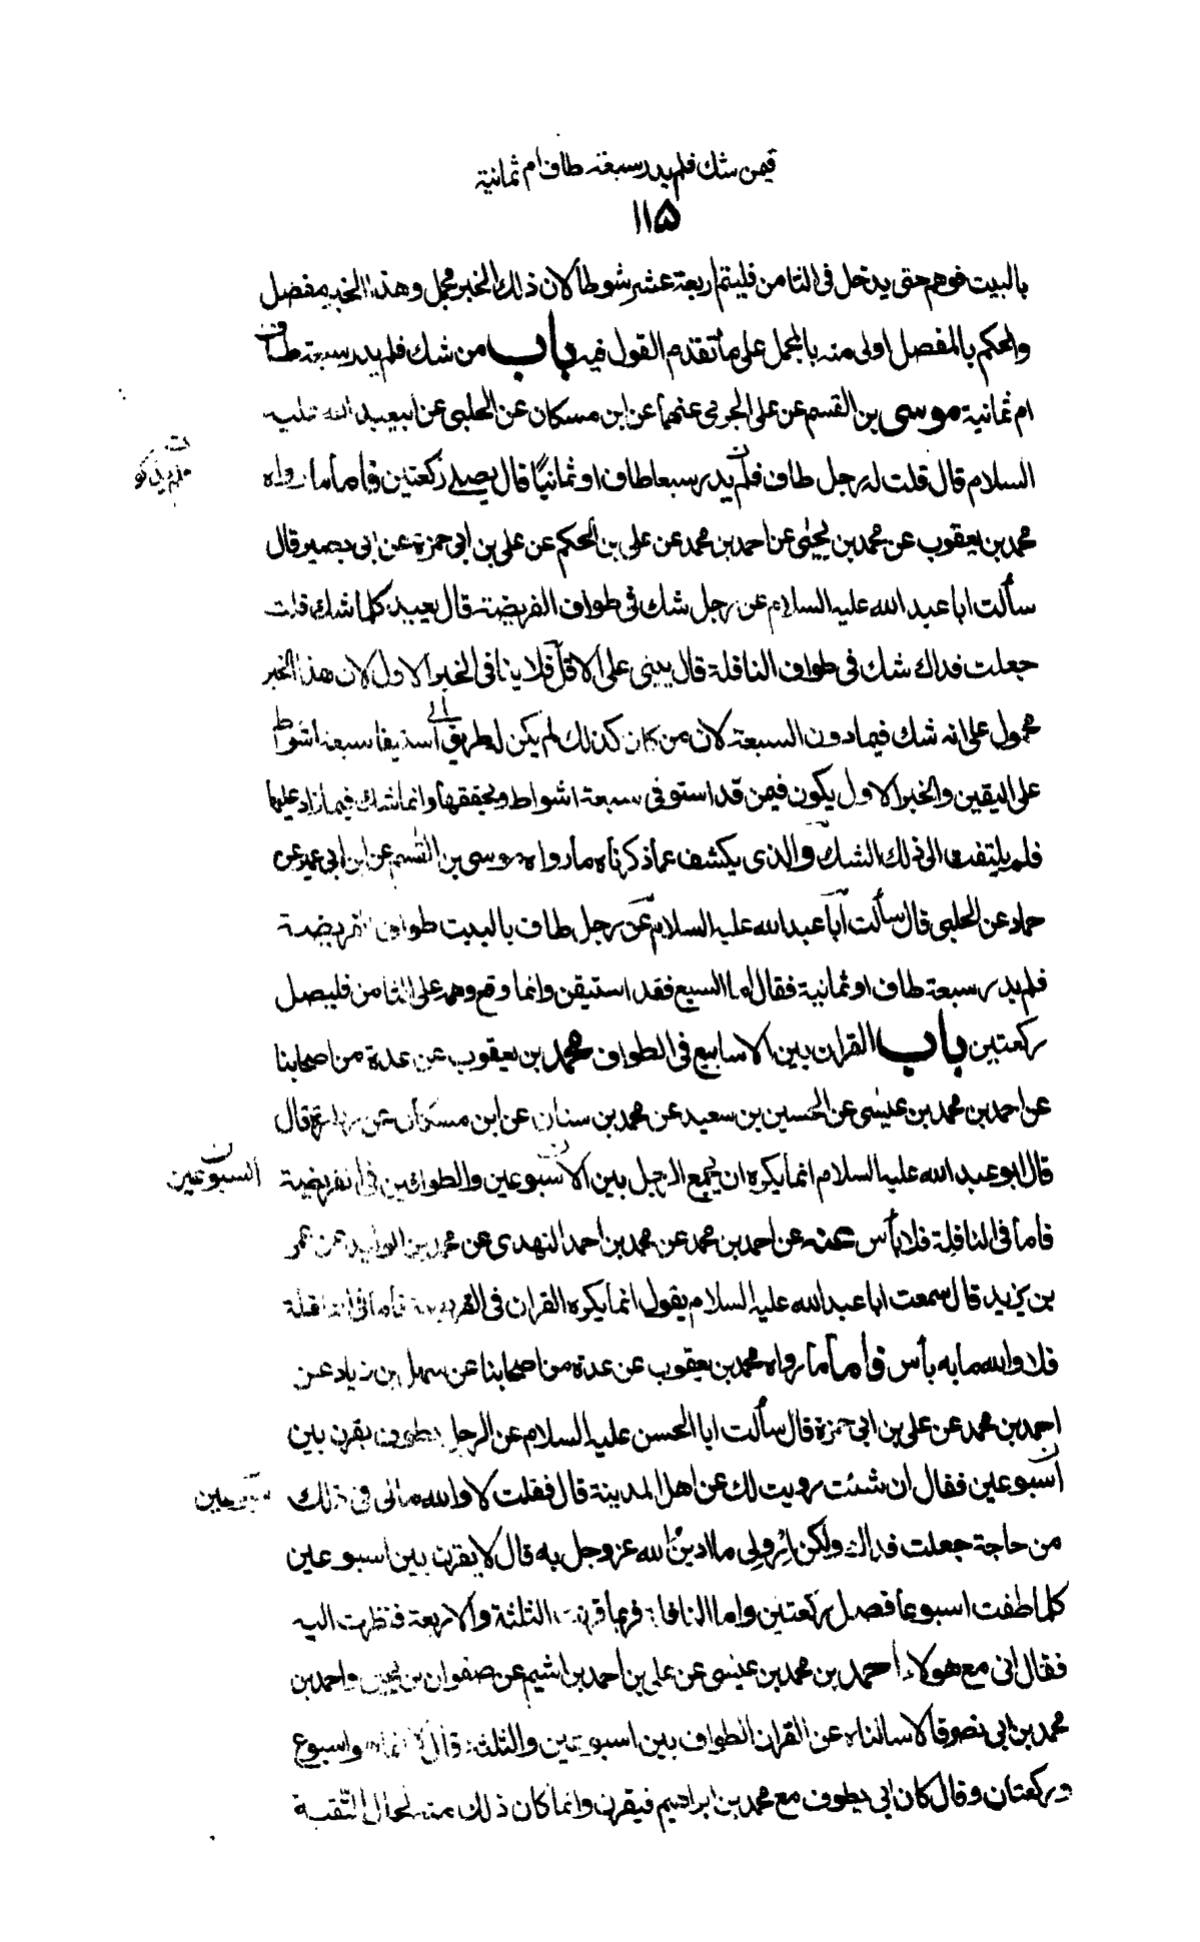 فيمن شك فلم يدر سبعة طاف ام ثمانية
١١۵
بالبيت فوهم حتى يدخل في الثامن فليتم اربعة عشر شوطا لان ذلك الخبر مجمل وهذا الخبر مفصل
والحكم بالمفصل اولى منه بالمجمل على ما تقدم القول فيه باب من شك فلم يدر سبعة طاف
ام ثمانية موسى بن القسم عن على الجرمى عنهما عن ابن مسكان عن الحلبى عن ابيعبد الله عليه
السلام قال قلت له رجل طاف فلم يدر سبعا طاف او ثمانيا قال يصلى ركعتين فاما ما رواه
محمد بن يعقوب عن محمد بن يحيى عن احمد بن محمد عن على بن الحكم عن على بن ابى حمزة عن ابى بصير قال
سألت ابا عبد الله عليه السلام عن رجل شك فى طواف الفريضة قال يعيد كلما شك قلت
جعلت فداك شك فى طواف النافلة قال يبنى على الاقل فلا ينافى الخبر الاول لان هذا الخبر
محمول على انه شك فيما دون السبعة لان من كان كذلك لم يكن له طريق الى استيفا سبعة اشواط
على اليقين والخبر الاول يكون فيمن قد استوفى سبعة اشواط وتحققها وانما شك فيما زاد عليها
فلم يلتفت الى ذلك الشك والذى يكشف عما ذكرناه ما رواه موسى بن القسم عن ابن ابى عمير عن
حماد عن الحلبى قال سألت ابا عبد الله عليه السلام عن رجل طاف بالبيت طواف الفريضة
فلم يدر سبعة طاف او ثمانية فقال اما السبع فقد استيقن وانما وقع وهمه على الثامن فليصل
ركعتين باب القران بين الاسابيع فى الطواف محمد بن يعقوب عن عدة من اصحابنا
عن احمد بن محمد بن عيسى عن الحسين بن سعيد عن محمد بن سنان عن ابن مسكان عن زرارة قال
قال ابو عبد الله عليه السلام انما يكره ان يجمع الرجل بين الاسبوعين والطوافين فى الفريضة السبوعين
فاما فى النافلة فلا بأس عنه عن احمد بن محمد عن محمد بن احمد النهدى عن محمد بن الوليد عن عمر
بن يزيد قال سمعت ابا عبد الله عليه السلام يقول انما يكره القران فى الفريضة فاما فى النافلة
فلا والله ما به بأس فاما ما رواه محمد بن يعقوب عن عدة من اصحابنا عن سهل بن زياد عن
احمد بن محمد عن على بن ابى حمزة قال سألت ابا الحسن عليه السلام عن الرجل يطوف يقرن بين
اسبوعين فقال ان شئت رويت لك عن اهل المدينة قال فقلت لا والله مالى فى ذلك
من حاجة جعلت فداك ولكن اروِ لى ما ادين الله عز وجل به قال لا يقرن بين اسبوعين
كلما طفت اسبوعا فصل ركعتين واما النافلة فربما قرنت الثلثة والاربعة فنظرت اليه
فقال انى مع هولاء احمد بن محمد بن عيسى عن على بن احمد بن اشيم عن صفوان بن يحيى واحمد بن
محمد بن ابى نصر قالا سالناه عن القران الطواف بين اسبوعين والثلثة قال لا انما هو اسبوع
وركعتان وقال كان ابى يطوف مع محمد بن ابراهيم فيقرن وانما كان ذلك منه لحال التقية